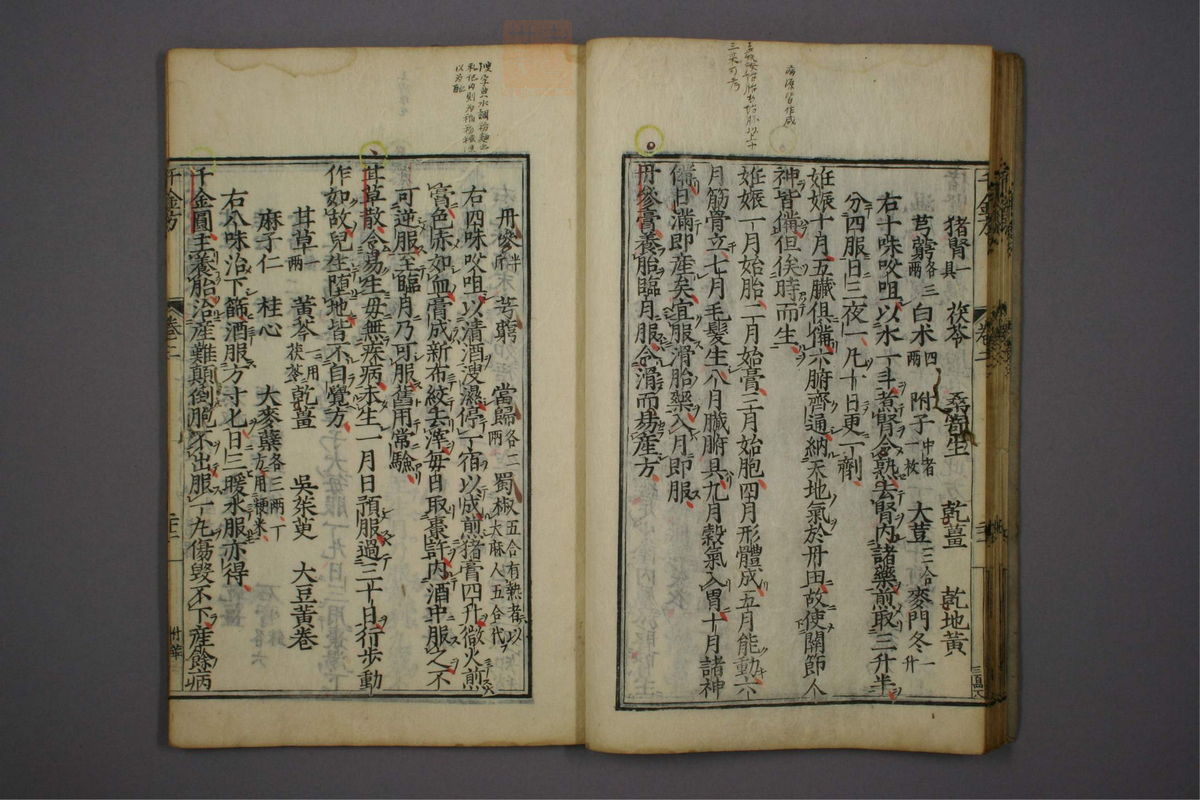 猪腎一具 茯苓 桑寄生 乾薑 乾地黃
芎藭各三兩 白朮四兩 附子中者一枚 大荳三合 麥門冬一升
右十味㕮咀以水一斗煮腎令熟去腎內諸藥煎取三升半
分四服日三夜一凡十日更一劑
妊娠十月五臟俱備六腑齊通納天地氣於丹田故使關節人
神皆備但俟時而生
妊娠一月始胎二月始膏三月始胞四月形體成五月能動六
月筋骨立七月毛髮生八月臟腑具九月穀氣入胃十月諸神
備日滿即產矣宜服滑胎藥入月即服
丹參膏養胎臨月服令滑而易產方
丹參半斤 芎藭 當歸各二兩 蜀椒五合有熱者以大麻人五合代
右四味㕮咀以清酒溲濕停一宿以成煎猪膏四升微火煎
膏色赤如血膏成新布絞去滓每日取棗許內酒中服之不
可逆服至臨月乃可服舊用常驗
甘草散令易生母無疾病未生一月日預服過三十日行步動
作如故兒生墮地皆不自覺方
甘草二兩 黃芩一用茯苓 乾薑 吳茱萸 大豆黃卷
麻子仁 桂心 大麥蘖各三兩一方用粳米
右八味治下篩酒服方寸七日三暖水服亦得
千金圓主養胎治產難顛倒胞不出服一丸傷毀不下產餘病
千金方 卷二